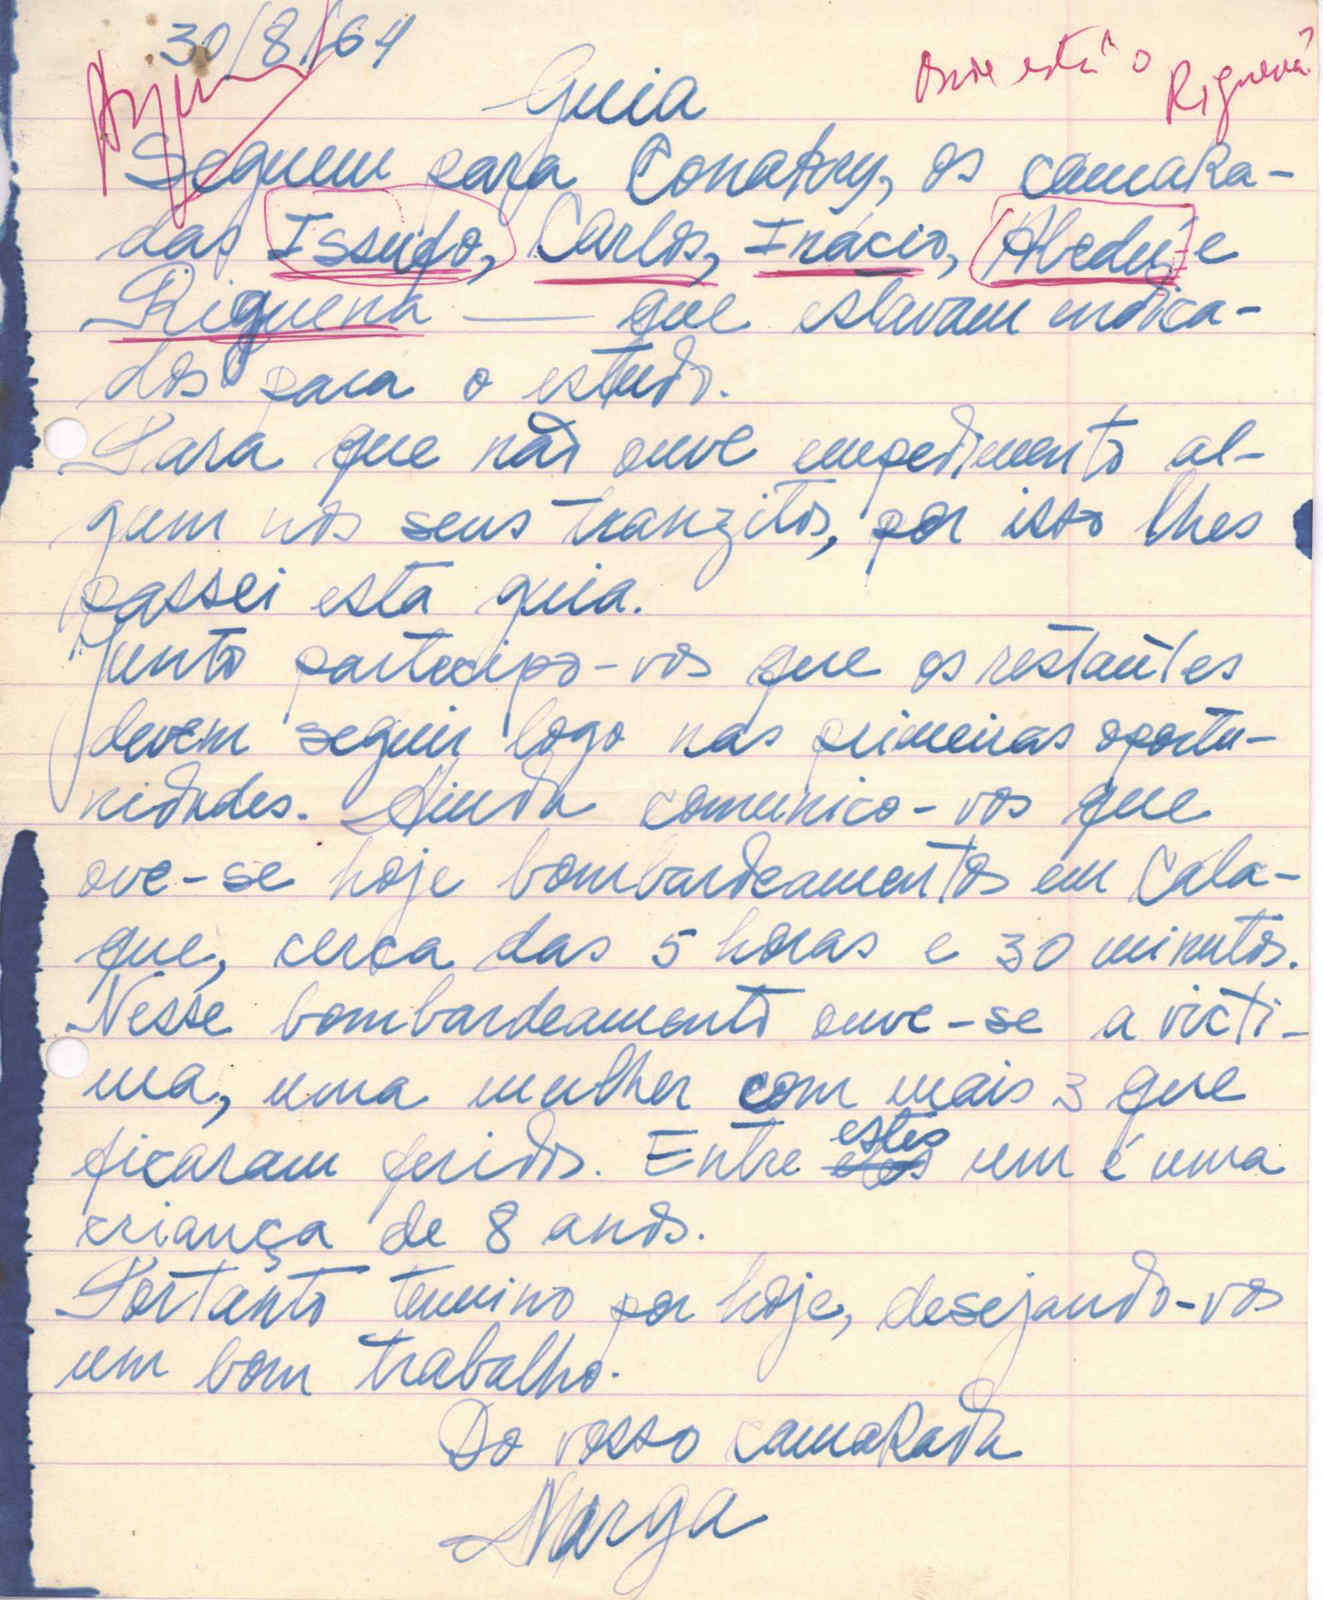 30/8/64
Onde está o Riguena?
Guia
Seguem para Conakry, os camara-
das Issufo, Carlos, Inácio, Aledu e
Riguena — que estavam endica-
dos para o estudo.
Para que não ouve empedimento al-
gum nos seus tranzitos, por isso lhes
passei esta guia.
Junto partecipo-vos que os restantes
devem seguir logo nas primeiras oportu-
nidades. Ainda comunico-vos que
ove-se hoje bombardeamentos em Cala-
que, cerca das 5 horas e 30 minutos.
Nesse bombardeamento ouve-se a victi-
ma, uma mulher com mais 3 que
ficaram feridos. Entre estes um é uma
criança de 8 anos.
Portanto termino por hoje, desejando-vos
um bom trabalho.
Do vosso camarada
Narga